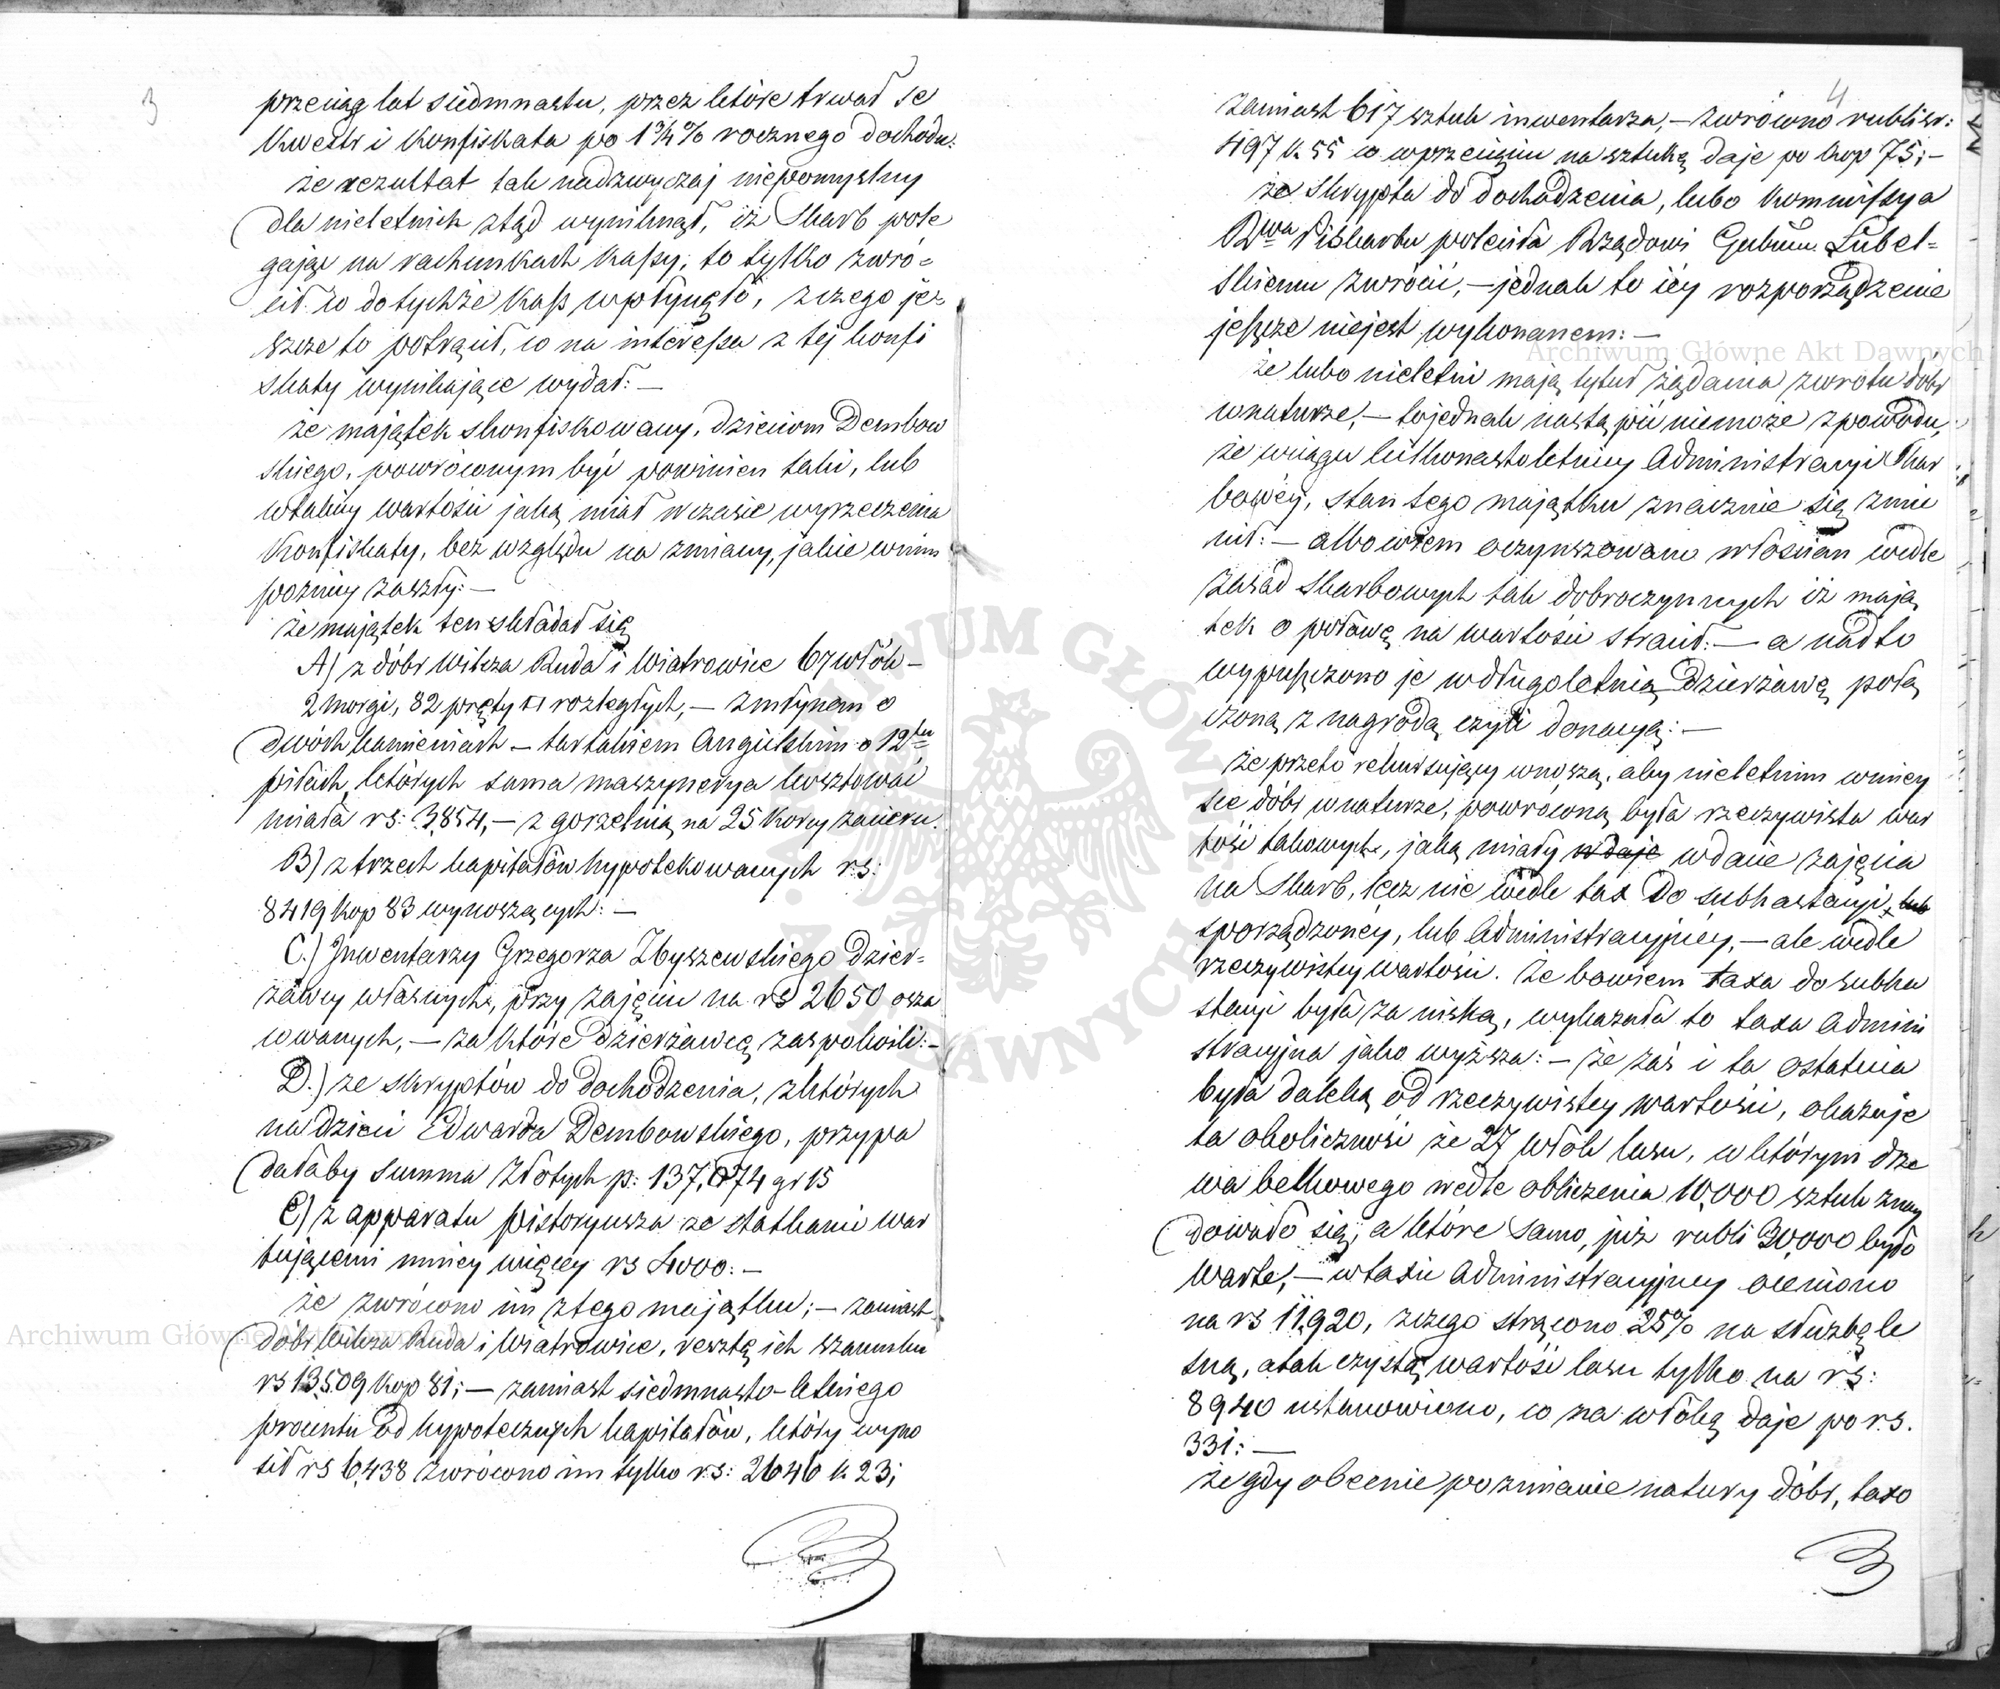 3
przeciąg lat siedmnastu, przez które trwał Se
kwestr i konfiskata po 1¾% rocznego dochodu.
że rezultat tak nadzwyczaj niepomyslny
dla nieletnich ztąd wyniknął, iż Skarb pole
gając na rachunkach Kassy, to tylko zwró=
cił co do tychże Kass wpłynęło, z czego je=
szcze to potrącił, co na interessa z tej konfi
skaty wynikające wydał: —
że majątek skonfiskowany, dzieciom Dembow
skiego, powróconym być powinien taki, lub
w takiey wartości jaką miał w czasie wyrzeczenia
Konfiskaty, bez względu na zmiany, jakie w nim
pozniey zaszły: —
że majątek ten składał się
A) z dóbr Wilcza Ruda i Wiatrowice 67 włók —
2 morgi, 82 pręty rozległych, — z młynem o
dwóch kamieniach — tartakiem Angielskim o 12tu
piłach, których sama maszynerya kosztować
miała rs: 3,854, — z gorzelnią na 25 Korcy zacieru.
B) z trzech kapitałów hypotekowanych rs:
8419 kop 83 wynoszących: —
C.) Inwentarzy Grzegorza Zbyszewskiego dzier=
żawcy własnych, przy zajęciu na rs 2650 osza
cowanych, — za które dzierżawcę zaspokoili: —
D.) ze skryptów do dochodzenia, z których
na dzieci Edwarda Dembowskiego, przypa
dałaby summa Złotych p: 137,074 gr 15
E) z apparatu pistoryusza ze statkami war
tującemi mniey więcey rs 4000: —
że zwrócono im z tego majątku; — zamiast
dóbr Wilcza Ruda i Wiatrowice, resztę ich szacunku
rs 13,509 kop 81; — zamiast siedmnasto-letniego
procentu od hypotecznych kapitałów, który wyno
sił rs 6,438 zwrócono im tylko rs: 2646 k 23;
4
zamiast 617 sztuk inwentarza, — zwrócono rubli sr:
497 k. 55 co w przecięciu na sztukę daje po kop 75; —
że skrypta do dochodzenia, lubo Kommissya
Rwa Przy: i Skarbu poleciła Rządowi Gubern. Lubel=
skiemu zwrócić, — jednak to iéy rozporządzenie
jeszcze niejest wykonanem: —
że lubo nieletni mają tytuł żądania zwrotu dóbr
w naturze, — to jednak nastąpić niemoże z powodu,
że w ciągu kilkonastoletniey Administracyi Skar
bowéy, stan tego majątku znacznie się zmie
nił: — albowiem oczynszowano włościan wedle
zasad Skarbowych tak dobroczynnych iż mają
tek o połowę na wartości stracił: — a nadto
wypuszczono je w długoletnią Dzierżawę połą
czoną z nagrodą czyli donacyą: —
że przeto rekursujący wnoszą, aby nieletnim w miey
sce dóbr w naturze, powróconą była rzeczywista war
tość takowych, jaką miały w dacie zajęcia
na Skarb, lecz nie wedle tax do subhastacyi
sporządzonéy, lub Administracyjney, — ale wedle
rzeczywistey wartości. Że bowiem taxa do subha
stacyi była za niską, wykazała to taxa Admini
stracyjna jako wyższa: — że zaś i ta ostatnia
była daleką od rzeczywistey wartości, okazuje
ta okoliczność że 27 włók lasu, w którym drze
wa belkowego wedle obliczenia 10,000 sztuk znay
dowało się, a które samo, już rubli 30,000 było
warte, — w taxie Administracyjney oceniono
na rs 11,920, z czego strącono 25% na służbę le
śną, a tak czystą wartość lasu tylko na rs:
8940 ustanowiono, co na włókę daje po rs.
331: —
że gdy obecnie po zmianie natury dóbr, taxo
Archiwum Główne Akt Dawnych
Archiwum Główne Akt Dawnych
ARCHIWUM GŁÓWNE AKT DAWNYCH